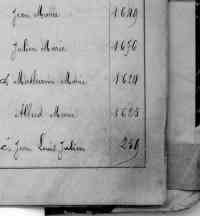 Jean Marie 1649
Julien Marie 1656
Mathurin Marie 1620
Alfred Marie 1625
Jean Louis Julien 250